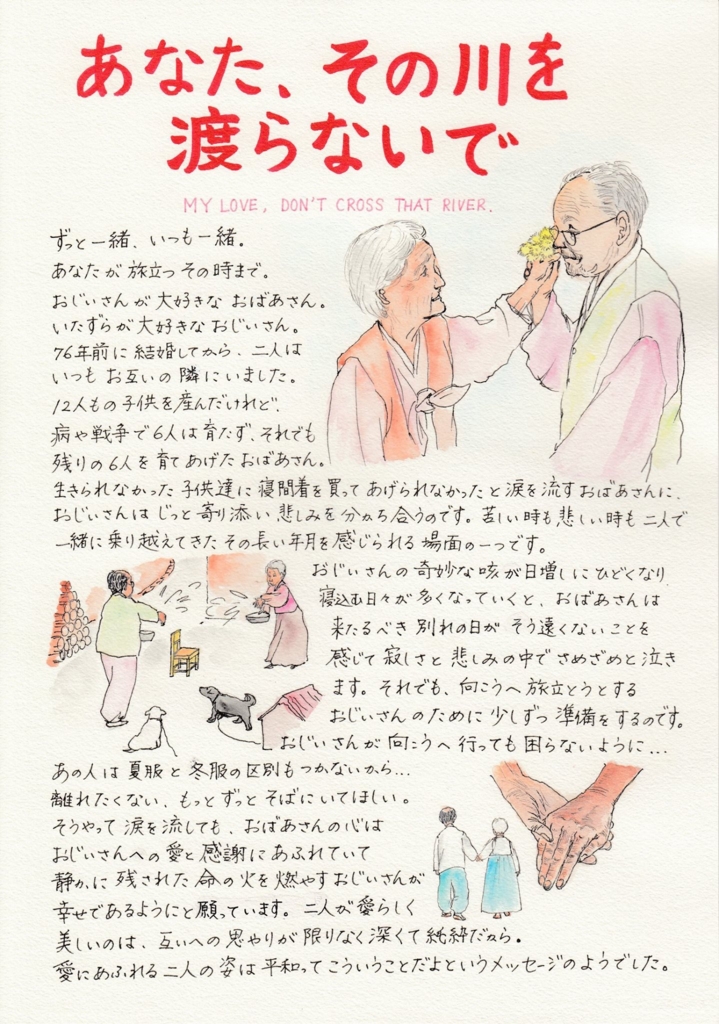 あなた、その川を
渡らないで
MY LOVE, DON'T CROSS THAT RIVER.
ずっと一緒、いつも一緒。
あなたが旅立つその時まで。
おじいさんが大好きなおばあさん。
いたずらが大好きなおじいさん。
76年前に結婚してから、二人は
いつもお互いの隣にいました。
12人もの子供を産んだけれど、
病や戦争で6人は育たず、それでも
残りの6人を育てあげたおばあさん。
生きられなかった子供達に寝間着を買ってあげられなかったと涙を流すおばあさんに、
おじいさんはじっと寄り添い悲しみを分かち合うのです。苦しい時も悲しい時も二人で
一緒に乗り越えてきたその長い年月を感じられる場面の一つです。
おじいさんの奇妙な咳が日増しにひどくなり、
寝込む日々が多くなっていくと、おばあさんは
来たるべき別れの日がそう遠くないことを
感じて寂しさと悲しみの中でさめざめと泣き
ます。それでも、向こうへ旅立とうとする
おじいさんのために少しずつ準備をするのです。
おじいさんが向こうへ行っても困らないように…
あの人は夏服と冬服の区別もつかないから…
離れたくない、もっとずっとそばにいてほしい。
そうやって涙を流しても、おばあさんの心は
おじいさんへの愛と感謝にあふれていて
静かに残された命の火を燃やすおじいさんが
幸せであるようにと願っています。二人が愛らしく
美しいのは、互いへの思やりが限りなく深くて純粋だから。
愛にあふれる二人の姿は平和ってこういうことだよというメッセージのようでした。